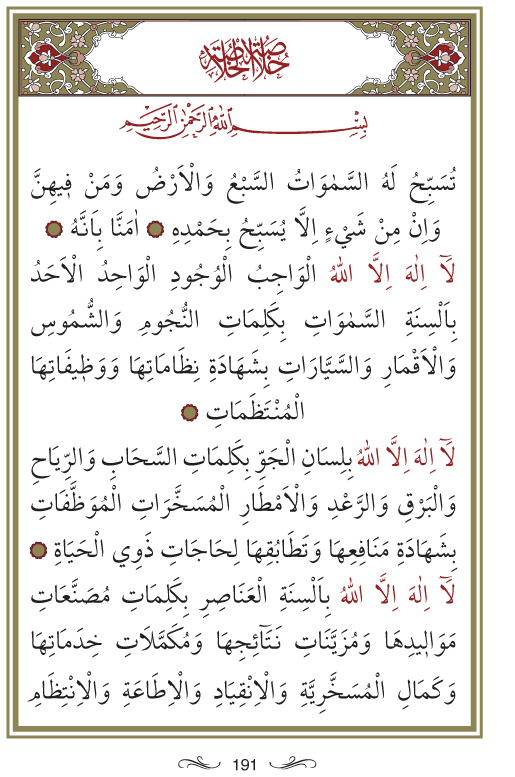 خُلَاصَةُ الْخُلَاصَةِ
بِسْمِ اللّٰهِ الرَّحْمٰنِ الرَّحٖيمِ
تُسَبِّحُ لَهُ السَّمٰوَاتُ السَّبْعُ وَالْاَرْضُ وَمَنْ فٖيهِنَّ
وَاِنْ مِنْ شَيْءٍ اِلَّا يُسَبِّحُ بِحَمْدِهِ ۞ اٰمَنَّا بِاَنَّهُ ۞
لَٓا اِلٰهَ اِلَّا اللّٰهُ الْوَاجِبُ الْوُجُودِ الْوَاحِدُ الْاَحَدُ
بِاَلْسِنَةِ السَّمٰوَاتِ بِكَلِمَاتِ النُّجُومِ وَالشُّمُوسِ
وَالْاَقْمَارِ وَالسَّيَّارَاتِ بِشَهَادَةِ نِظَامَاتِهَا وَوَظٖيفَاتِهَا
الْمُنْتَظَمَاتِ ۞
لَٓا اِلٰهَ اِلَّا اللّٰهُ بِلِسَانِ الْجَوِّ بِكَلِمَاتِ السَّحَابِ وَالرِّيَاحِ
وَالْبَرْقِ وَالرَّعْدِ وَالْاَمْطَارِ الْمُسَخَّرَاتِ الْمُوَظَّفَاتِ
بِشَهَادَةِ مَنَافِعِهَا وَتَطَابُقِهَا لِحَاجَاتِ ذَوِي الْحَيَاةِ ۞
لَٓا اِلٰهَ اِلَّا اللّٰهُ بِاَلْسِنَةِ الْعَنَاصِرِ بِكَلِمَاتِ مُصَنَّعَاتِ
مَوَالٖيدِهَا وَمُزَيَّنَاتِ نَتَٓائِجِهَا وَمُكَمَّلَاتِ خِدَمَاتِهَا
وَكَمَالِ الْمُسَخَّرِيَّةِ وَالْاِنْقِيَادِ وَالْاِطَاعَةِ وَالْاِنْتِظَامِ
191